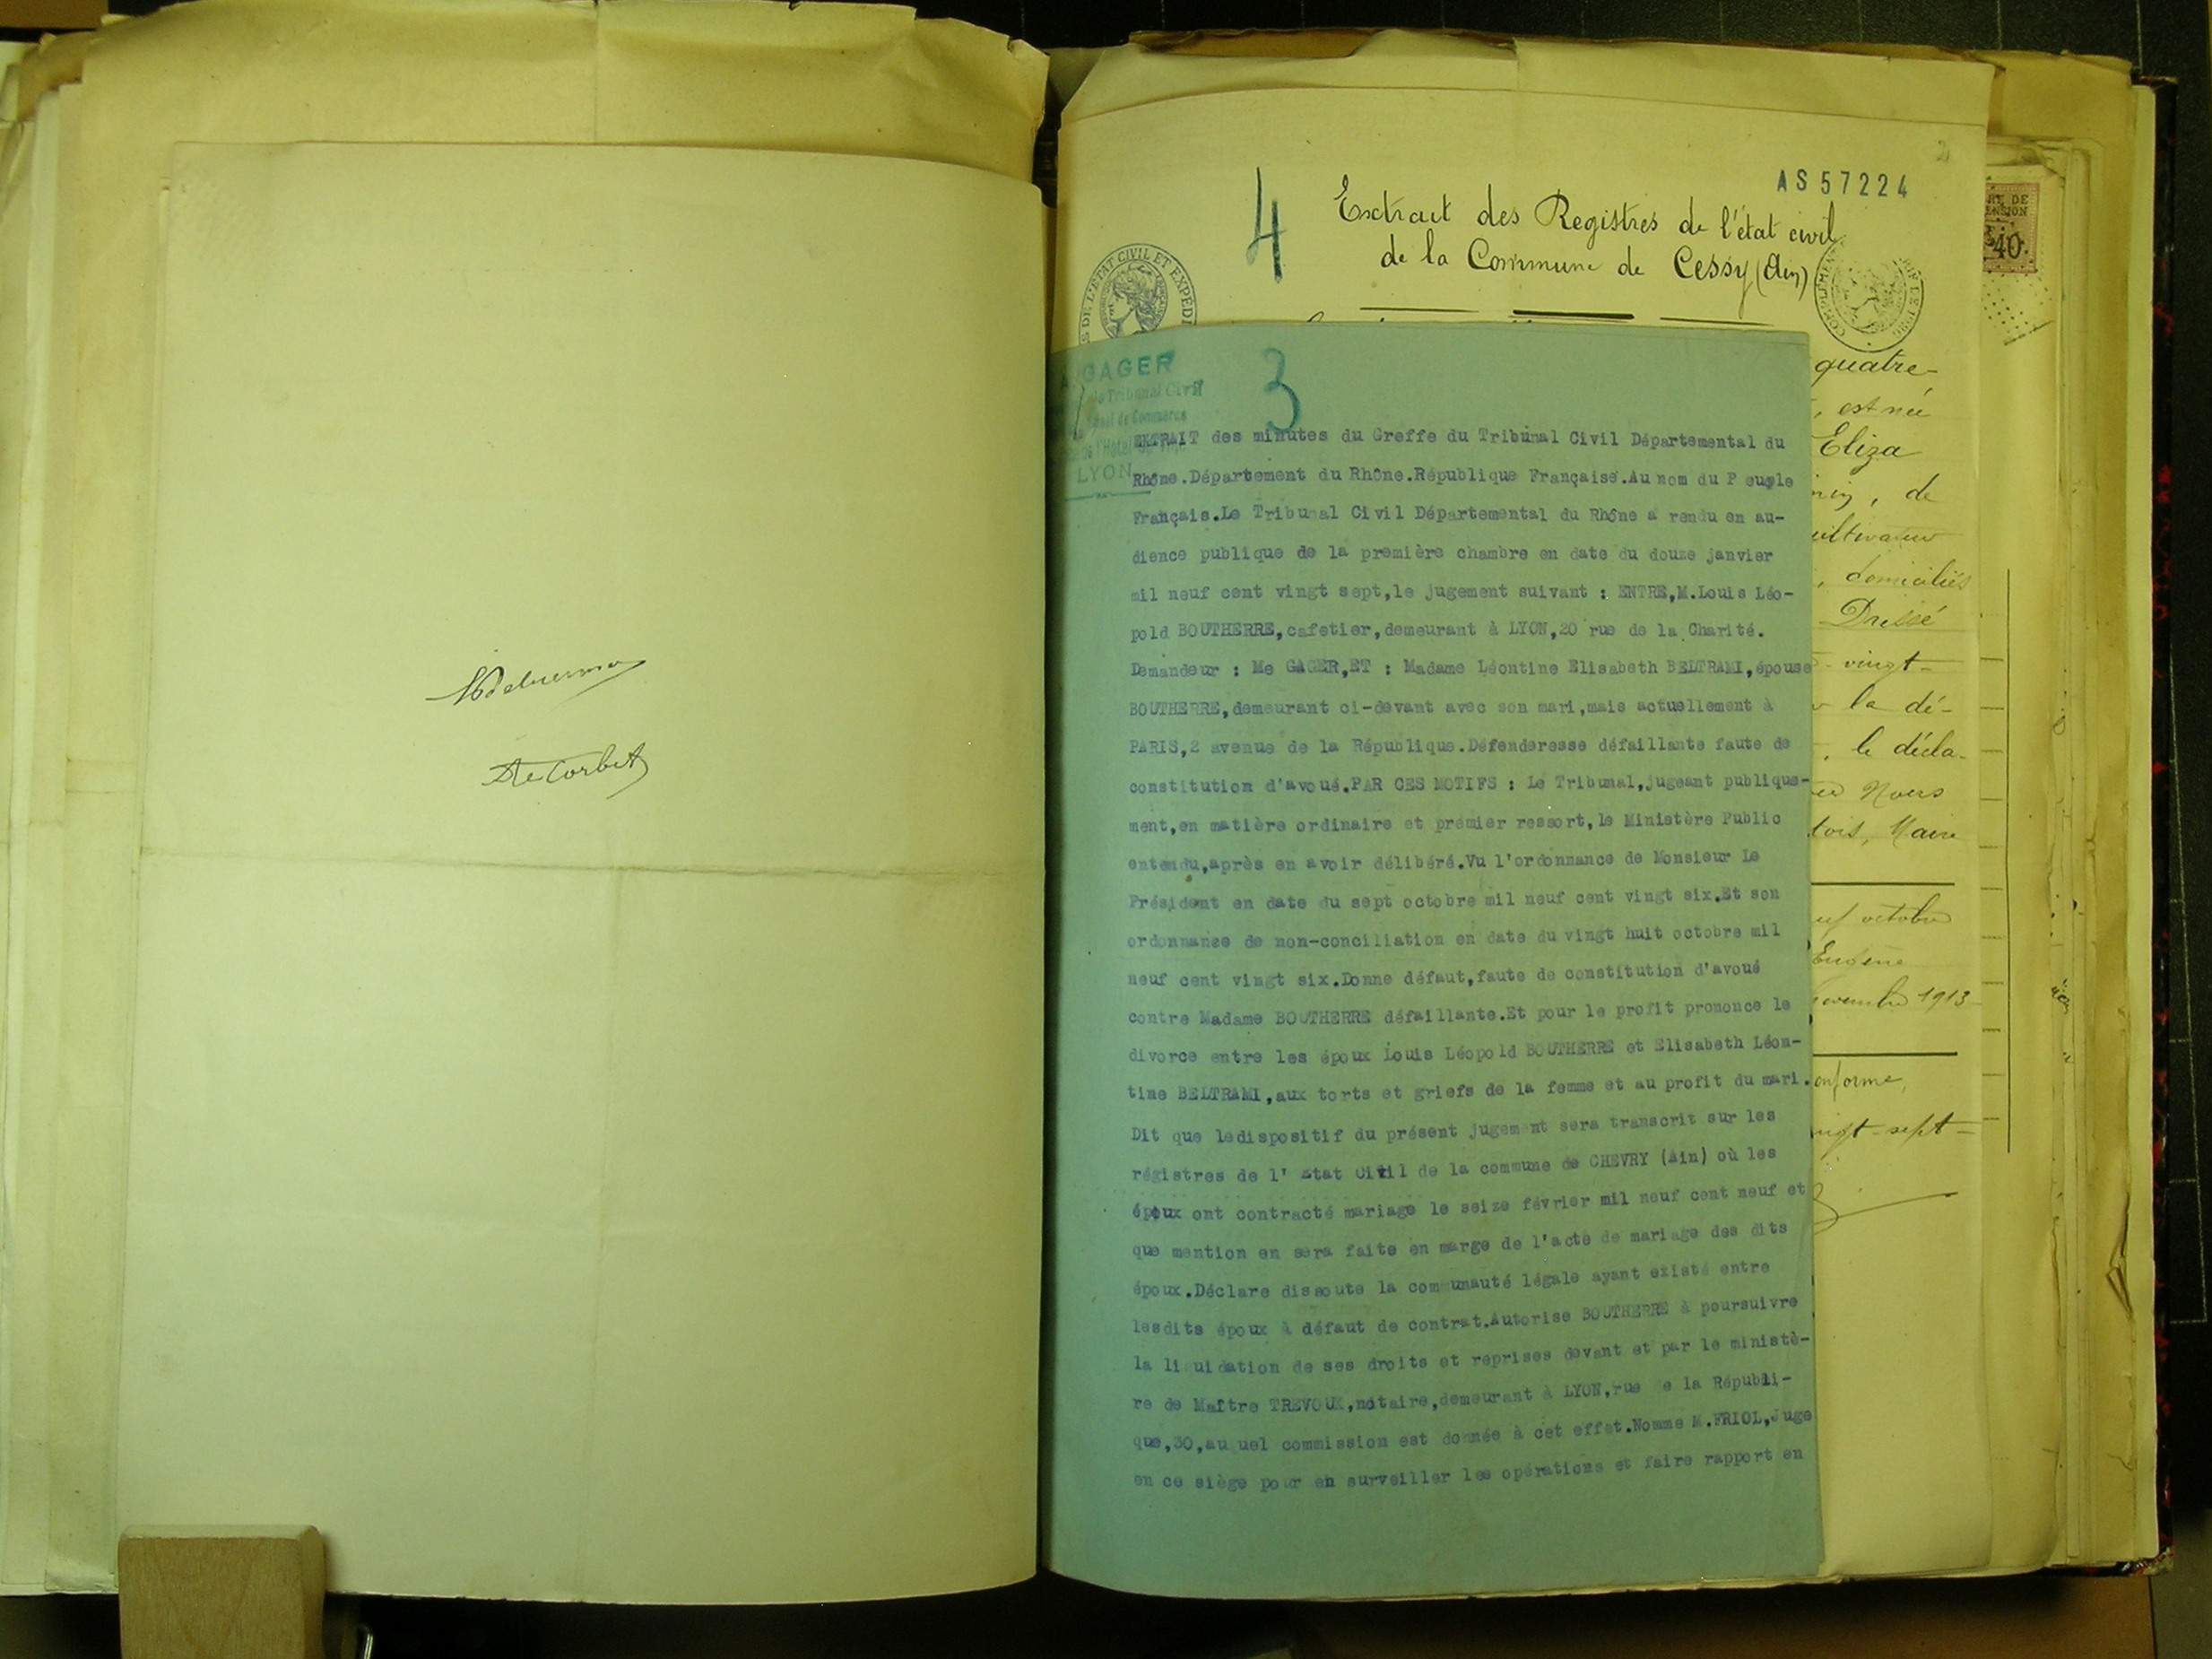 DeCorbet
AS 57224
4
Extrait des Registres de l'état civil
de la Commune de Cessy (Ain)
S DE L'ETAT CIVIL ET EXPEDI
40
quatre-
, est née
Eliza
, de
cultivateur
, domiciliés
Dressé
vingt-
la dé-
, le décla-
Nous
Maire
octobre
Eugène
1913
conforme,
vingt-sept
GAGER
Tribunal Civil
de Commerce
l'Hôtel de Ville
LYON
3
EXTRAIT des minutes du Greffe du Tribunal Civil Départemental du
Rhône.Département du Rhône.République Française.Au nom du P euple
Français.Le Tribunal Civil Départemental du Rhône a rendu en au-
dience publique de la première chambre en date du douze janvier
mil neuf cent vingt sept,le jugement suivant : ENTRE,M.Louis Léo-
pold BOUTHERRE,cafetier,demeurant à LYON,20 rue de la Charité.
Demandeur : Me GAGER,ET : Madame Léontine Elisabeth BELTRAMI,épouse
BOUTHERRE,demeurant ci-devant avec son mari,mais actuellement à
PARIS,2 avenue de la République.Défenderesse défaillante faute de
constitution d'avoué.PAR CES MOTIFS : Le Tribunal,jugeant publique-
ment,en matière ordinaire et premier ressort,le Ministère Public
entendu,après en avoir délibéré.Vu l'ordonnance de Monsieur Le
Président en date du sept octobre mil neuf cent vingt six.Et son
ordonnanse de non-conciliation en date du vingt huit octobre mil
neuf cent vingt six.Donne défaut,faute de constitution d'avoué
contre Madame BOUTHERRE défaillante.Et pour le profit prononce le
divorce entre les époux Louis Léopold BOUTHERRE et Elisabeth Léon-
tine BELTRAMI,aux torts et griefs de la femme et au profit du mari.
Dit que ledispositif du présent jugement sera transcrit sur les
régistres de l' Etat Civil de la commune de CHEVRY (Ain) où les
époux ont contracté mariage le seize février mil neuf cent neuf et
que mention en sera faite en marge de l'acte de mariage des dits
époux.Déclare dissoute la communauté légale ayant existé entre
lesdits époux à défaut de contrat.Autorise BOUTHERRE à poursuivre
la li uidation de ses droits et reprises devant et par le ministè-
re de Maître TREVOUX,notaire,demeurant à LYON,rue e la Républi-
que,30,au uel commission est donnée à cet effet.Nomme M.FRIOL,Juge
en ce siège pour en surveiller les opérations et faire rapport en